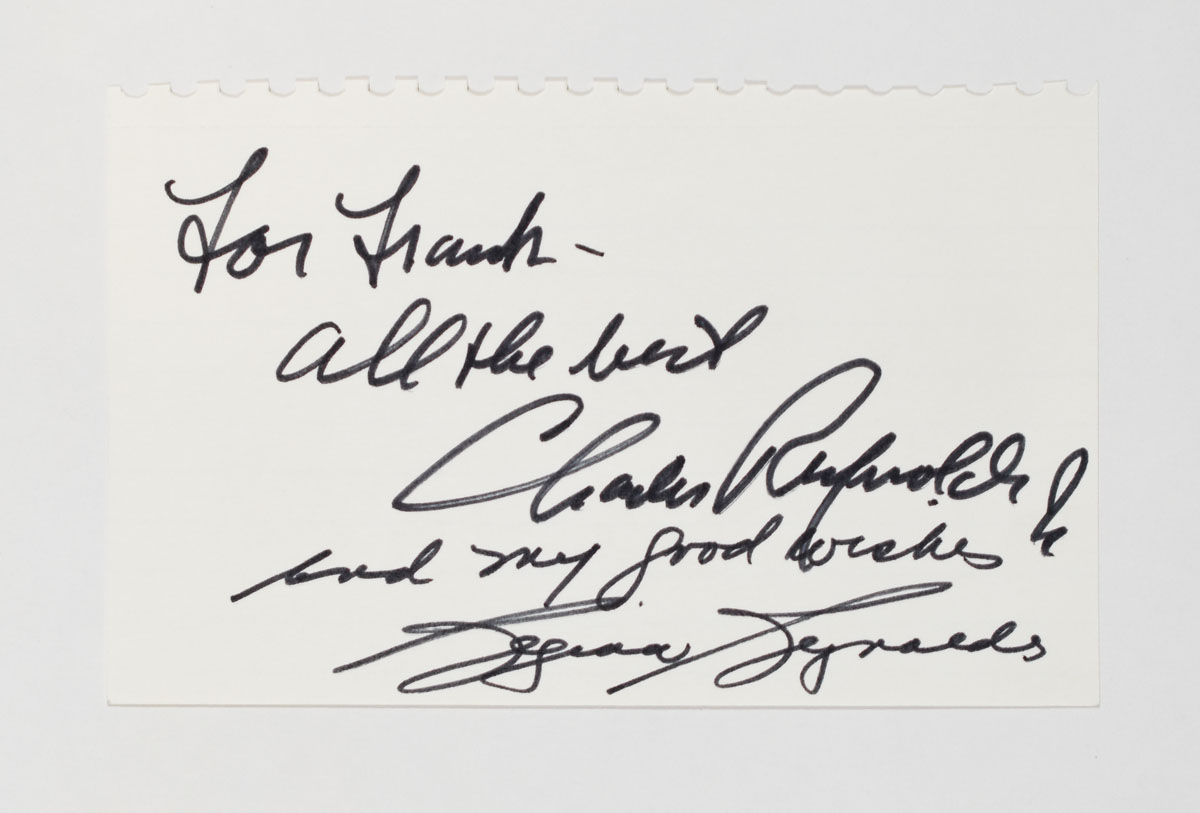 For Frank -
all the best
Charles Reynolds
and my good wishes
Regina Reynolds